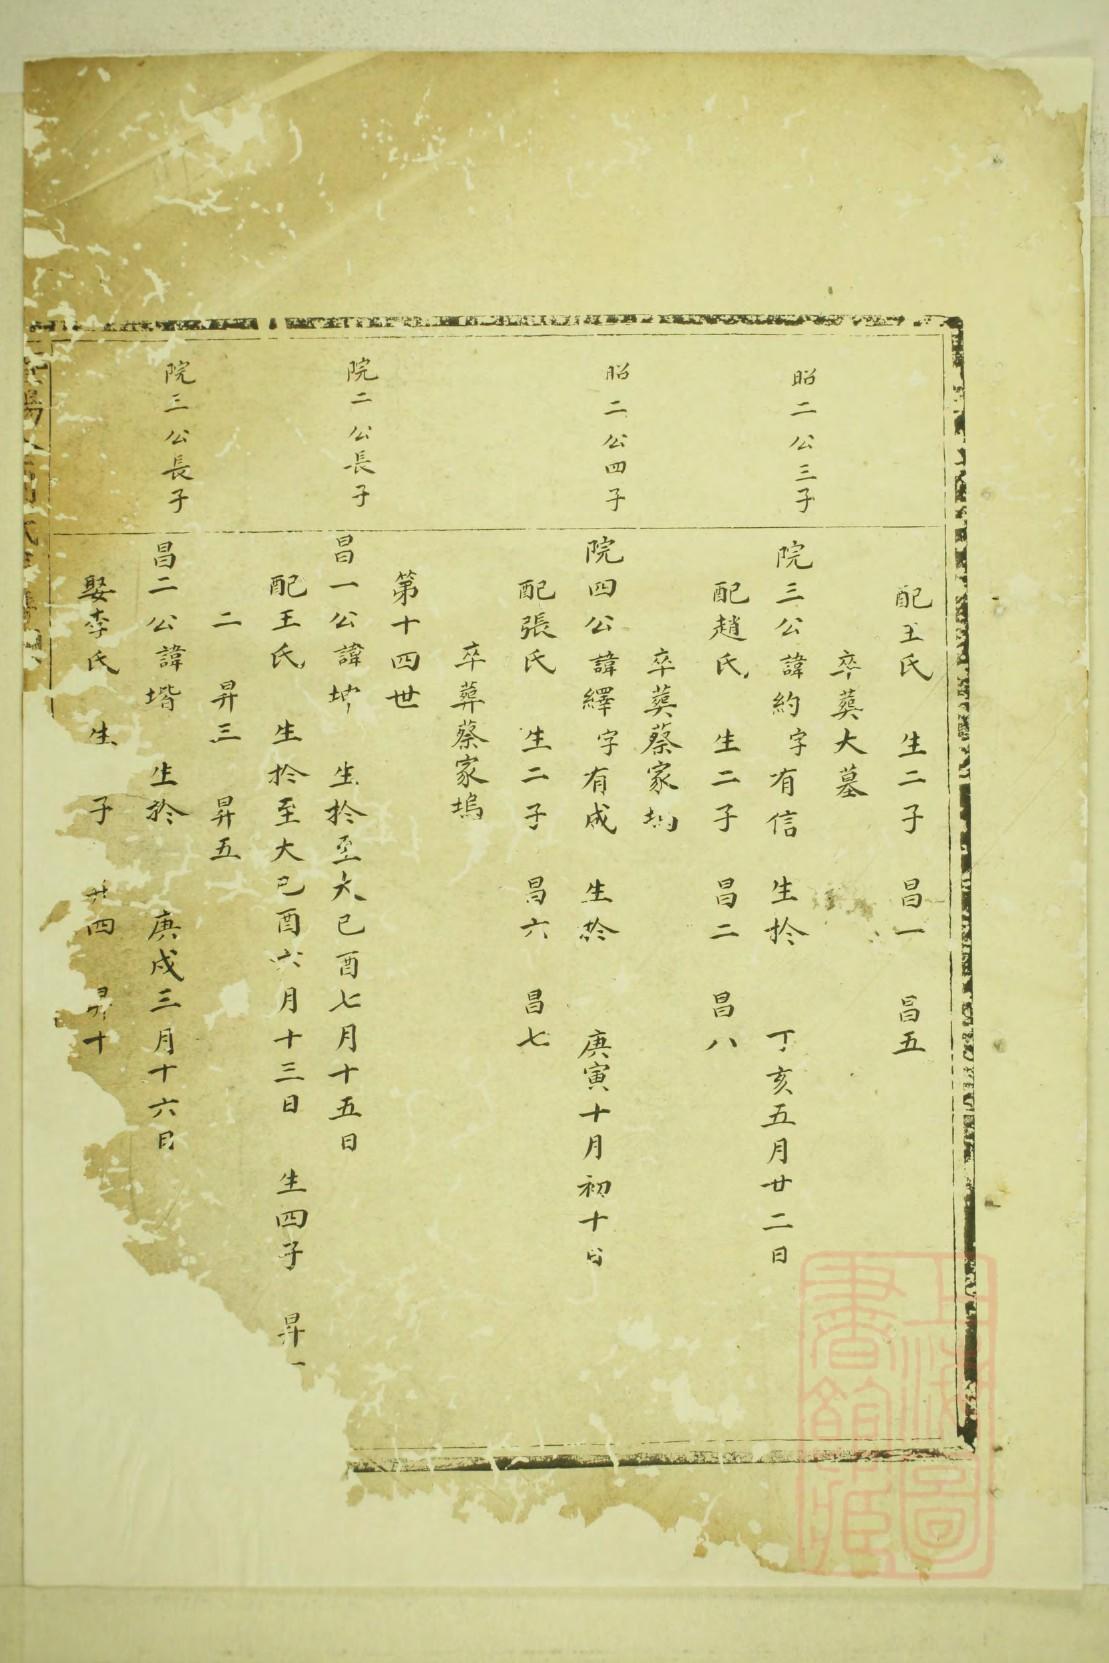 配王氏 生二子 昌一 昌五
卒葬大墓
昭二公三子 院三公諱約字有信 生於 丁亥五月廿二日
配趙氏 生二子 昌二 昌八
卒葬蔡家塢
昭二公四子 院四公諱繹字有成 生於 庚寅十月初十日
配張氏 生二子 昌六 昌七
卒葬蔡家塢
第十四世
院二公長子 昌一公諱 生於至大己酉七月十五日
配王氏 生於至大己酉六月十三日 生四子 昇一
二 昇三 昇五
院三公長子 昌二公諱堦 生於 庚戌三月十六日
娶李氏 生 子 四 昇十
上海圖書館藏